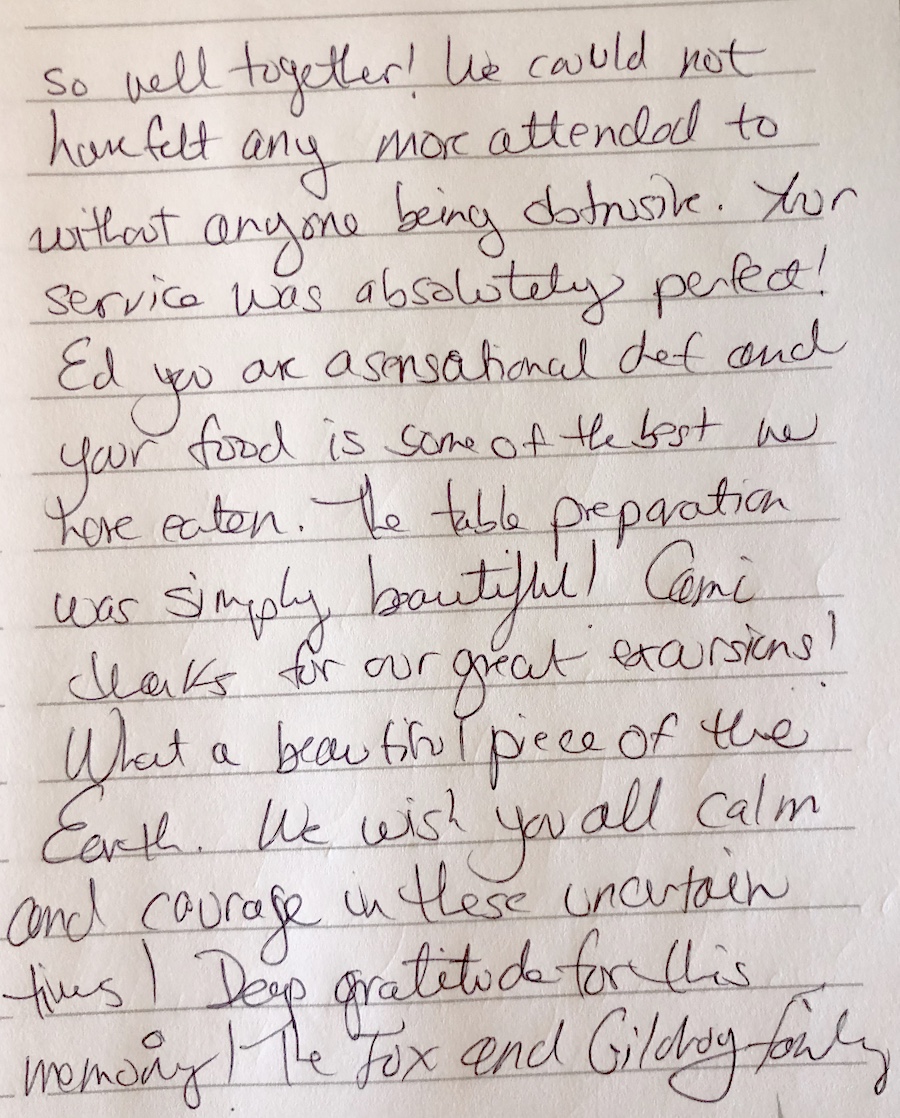 so well together! We could not
have felt any more attended to
without anyone being obtrusive. Your
service was absolutely perfect!
Ed you are a sensational chef and
your food is some of the best we
have eaten. The table preparation
was simply beautiful! Cami
thanks for our great excursions!
What a beautiful piece of the
Earth. We wish you all calm
and courage in these uncertain
times! Deep gratitude for this
memory! The Fox and Gildroy family